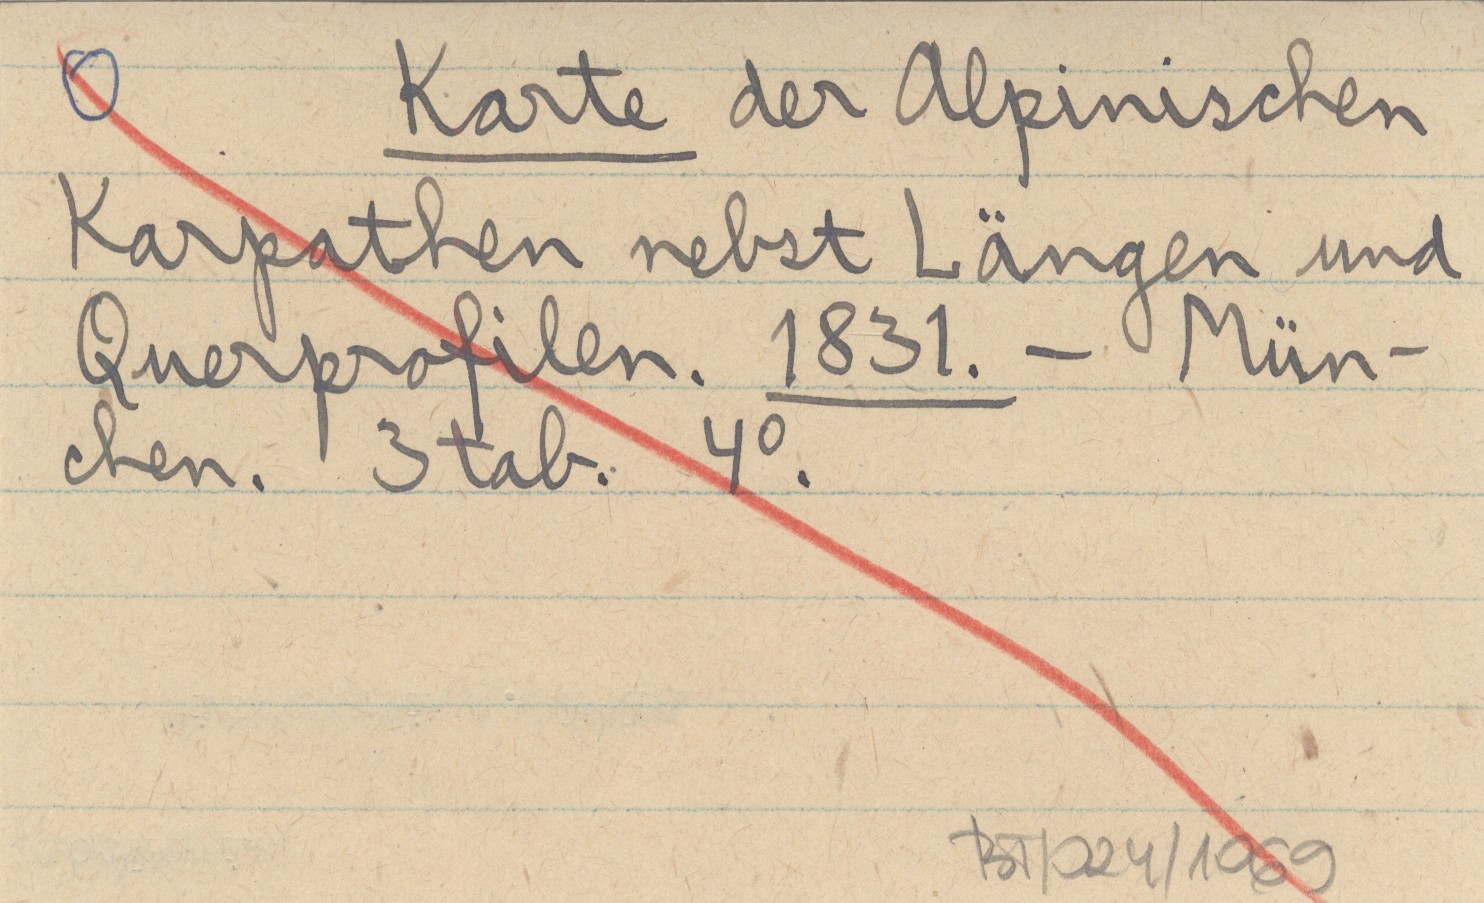 Karte der Alpinischen
Karpathen nebst Längen und
Querprofilen. 1831. – Mün-
chen. 3 tab. 4º.
/1969